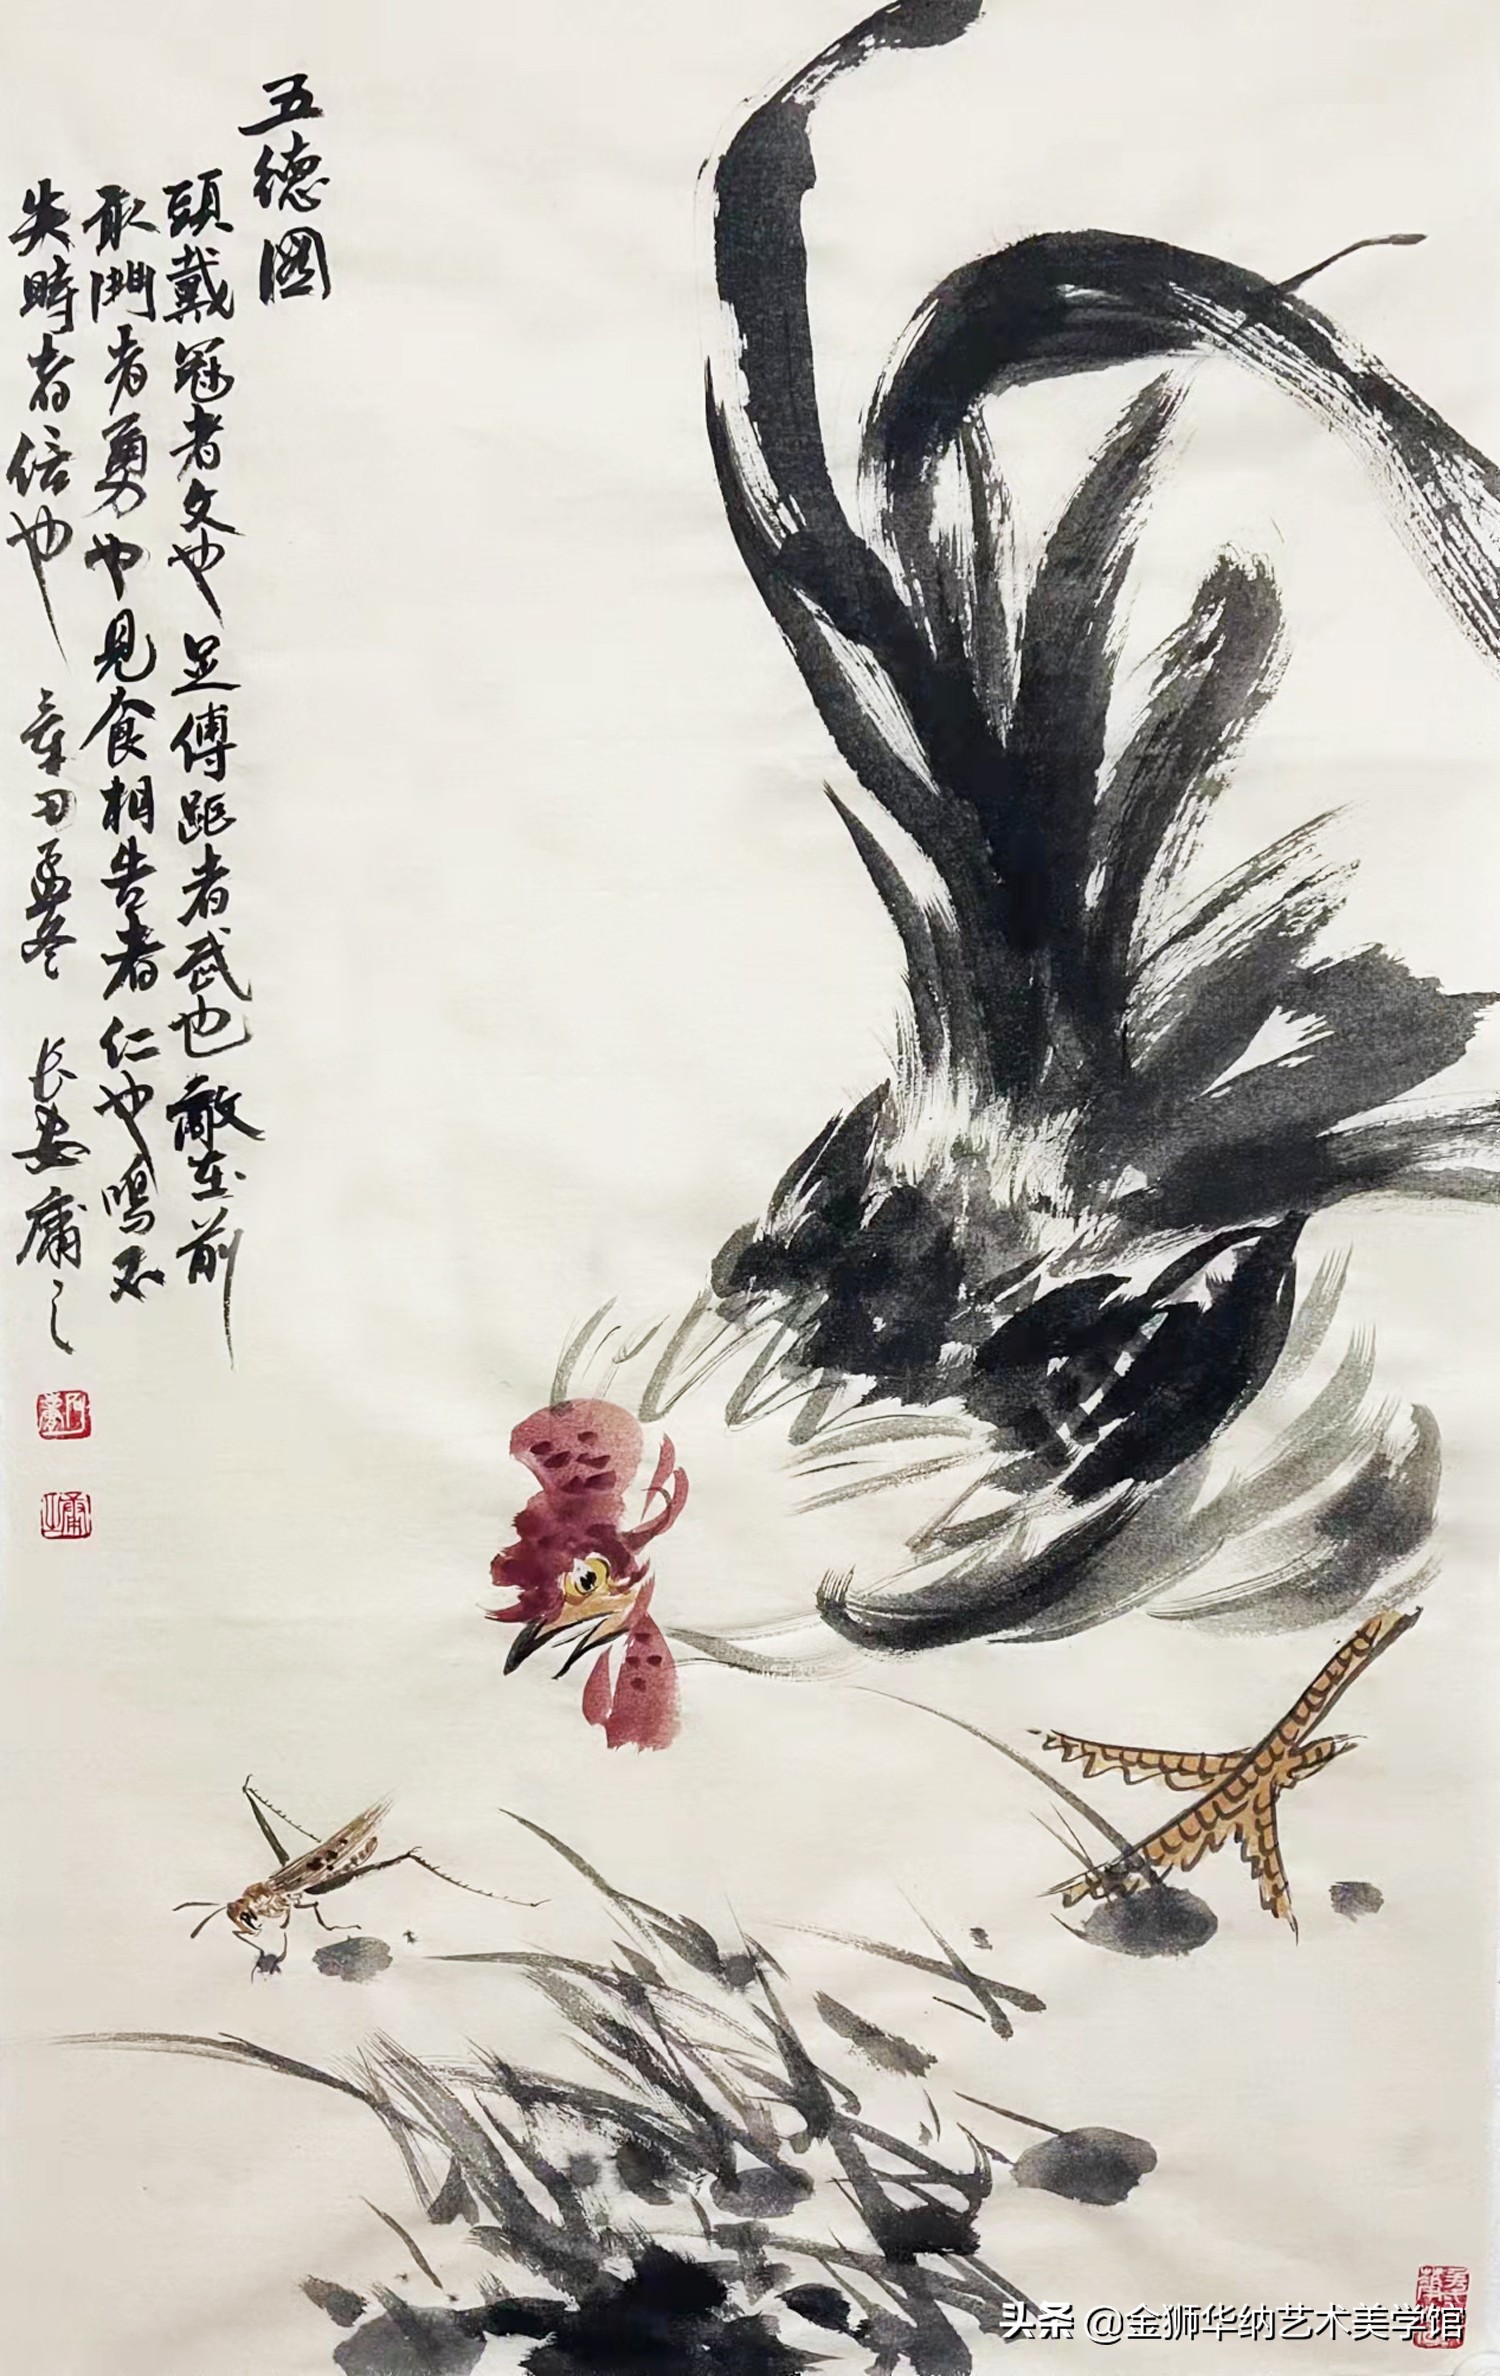 五德圖
頭戴冠者文也足傅距者武也敵在前
敢鬥者勇也見食相告者仁也鳴不
失時者信也 辛丑孟冬 長安庸之
庸之
头条 @金狮华纳艺术美学馆